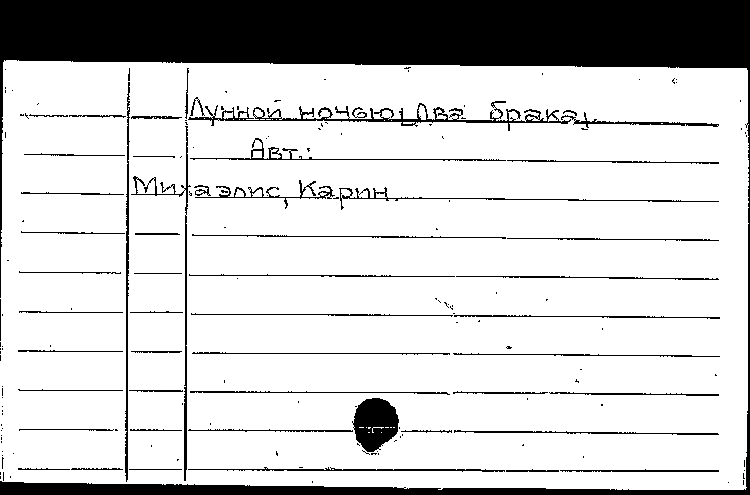 Лунной ночью [Два брака].
Авт.:
Михаэлис, Карин.